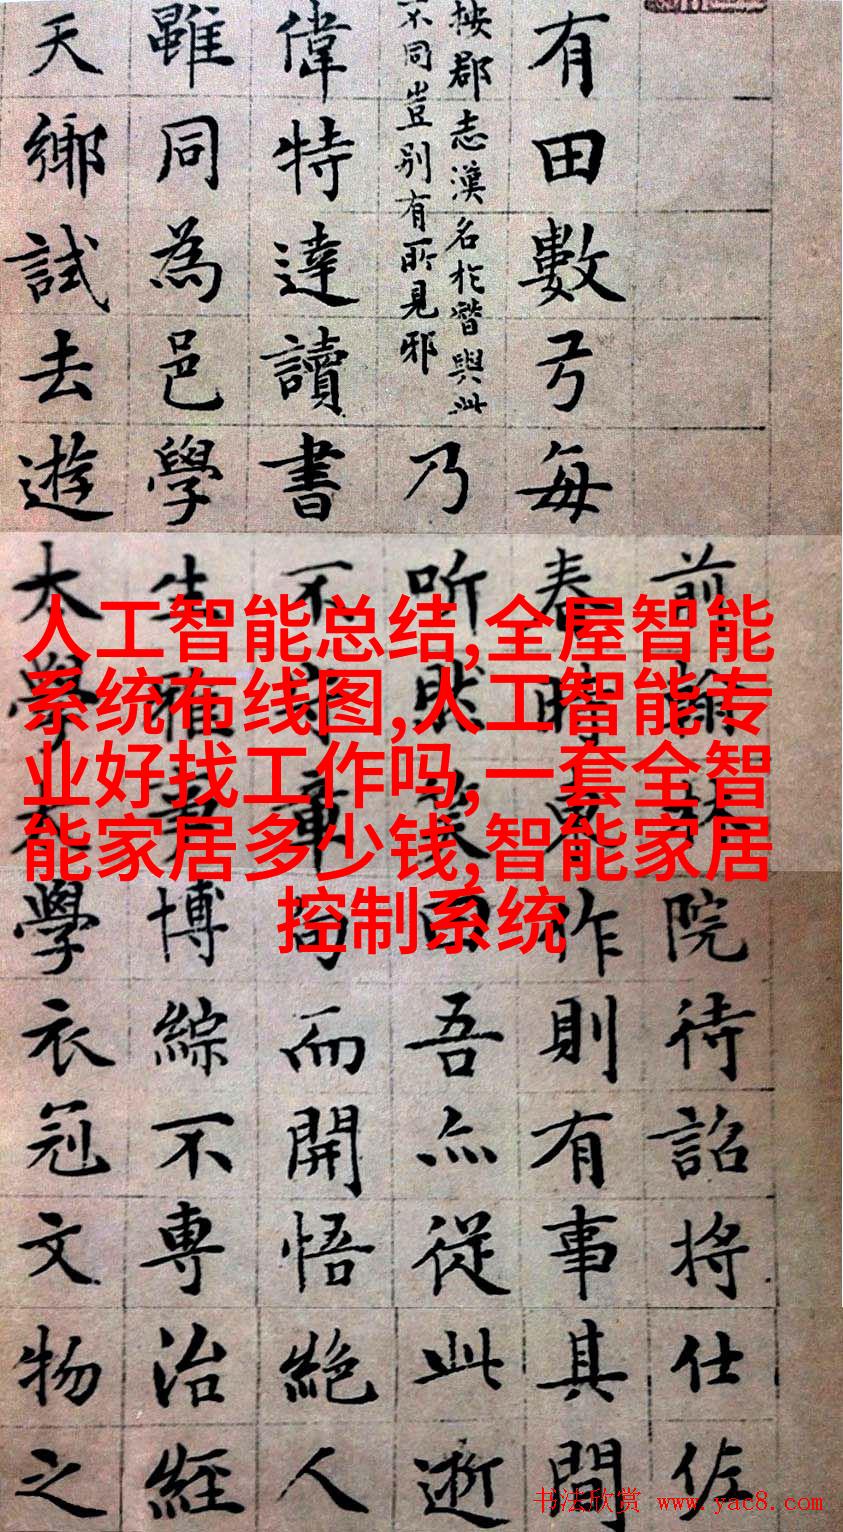 前翰林院待詔將仕佐
有田數亏每春時東作則有事其間
按郡志漢名於晉與此
不同豈别有所見邪
乃听然笑曰吾亦從此逝
偉特達讀書不守章句而開悟絶人
雖同為邑學生雅博綜不專治經
天鄉試去遊大學太學衣冠文物之
人工智能总结,全屋智能
系统布线图,人工智能专
业好找工作吗,一套全智
能家居多少钱,智能家居
控制系统
书法欣赏 www.yac8.com